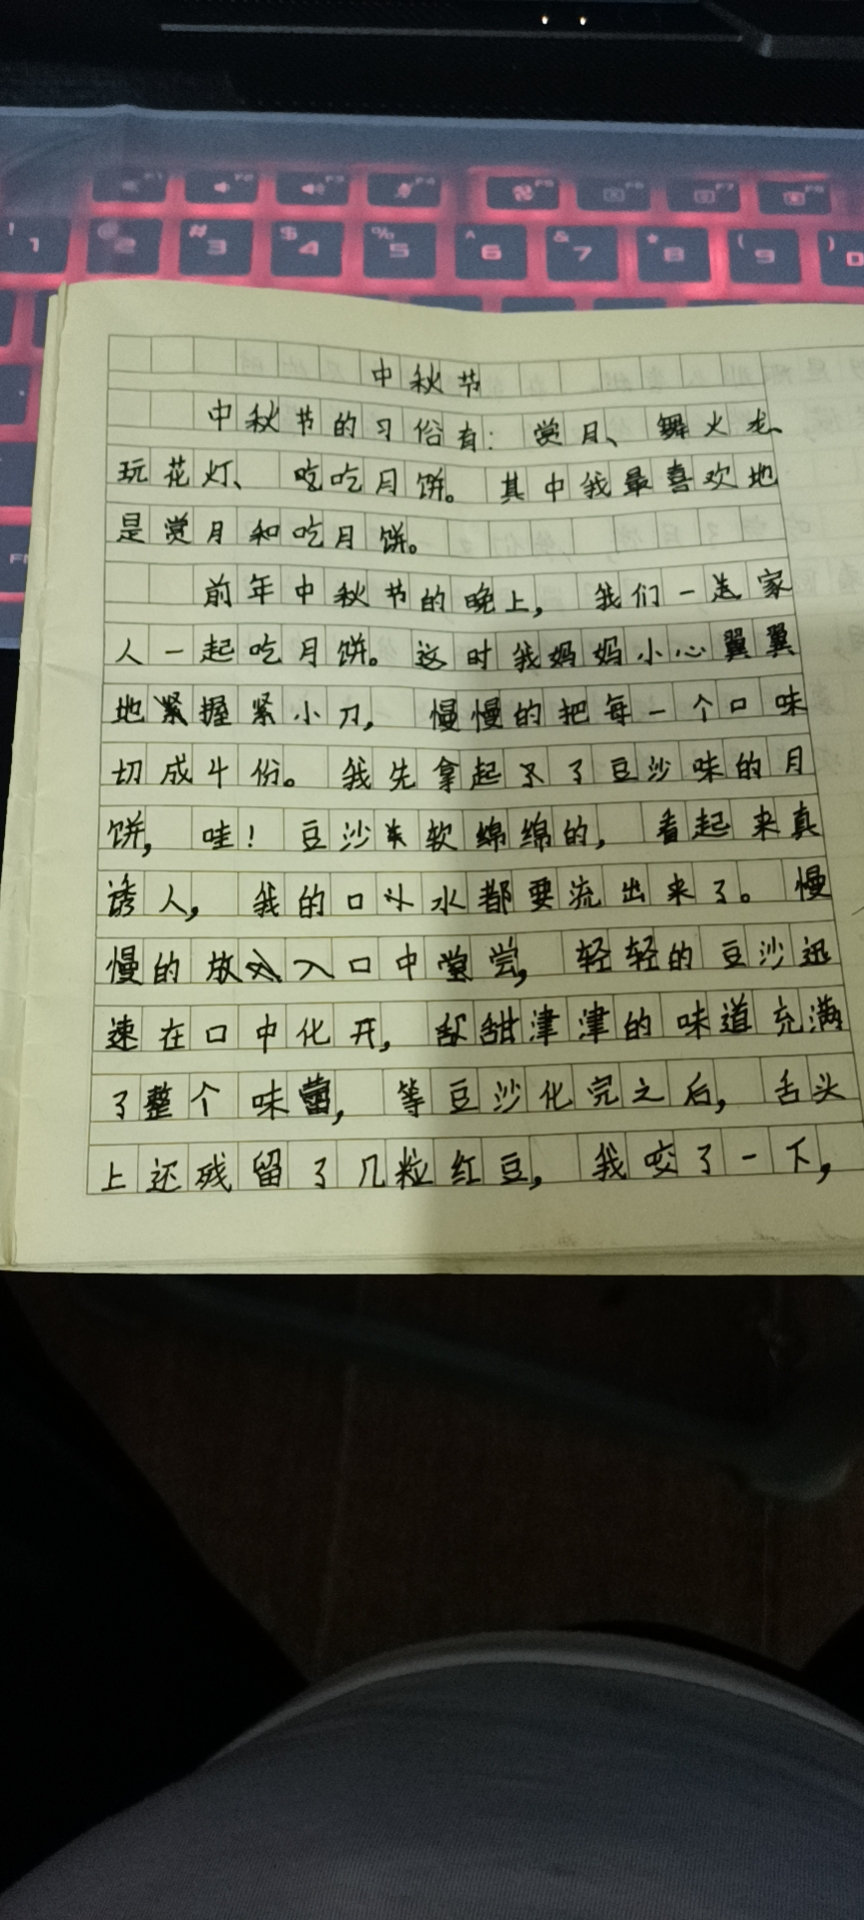 F1 F2 F3 F4 F5 F6 F7 F8
! 1 @ 2 # 3 $ 4 % 5 ^ 6 & 7 * 8 ( 9 ) 0
中秋节
中秋节的习俗有：赏月、舞火龙、
玩花灯、吃吃月饼。其中我最喜欢地
是赏月和吃月饼。
前年中秋节的晚上，我们一家
人一起吃月饼。这时我妈妈小心翼翼
地握紧小刀，慢慢的把每一个口味
切成4份。我先拿起了豆沙味的月
饼，哇！豆沙软绵绵的，看起来真
诱人，我的口水都要流出来了。慢
慢的放入口中尝，轻轻的豆沙迅
速在口中化开，甜津津的味道充满
了整个味蕾，等豆沙化完之后，舌头
上还残留了几粒红豆，我咬了一下，